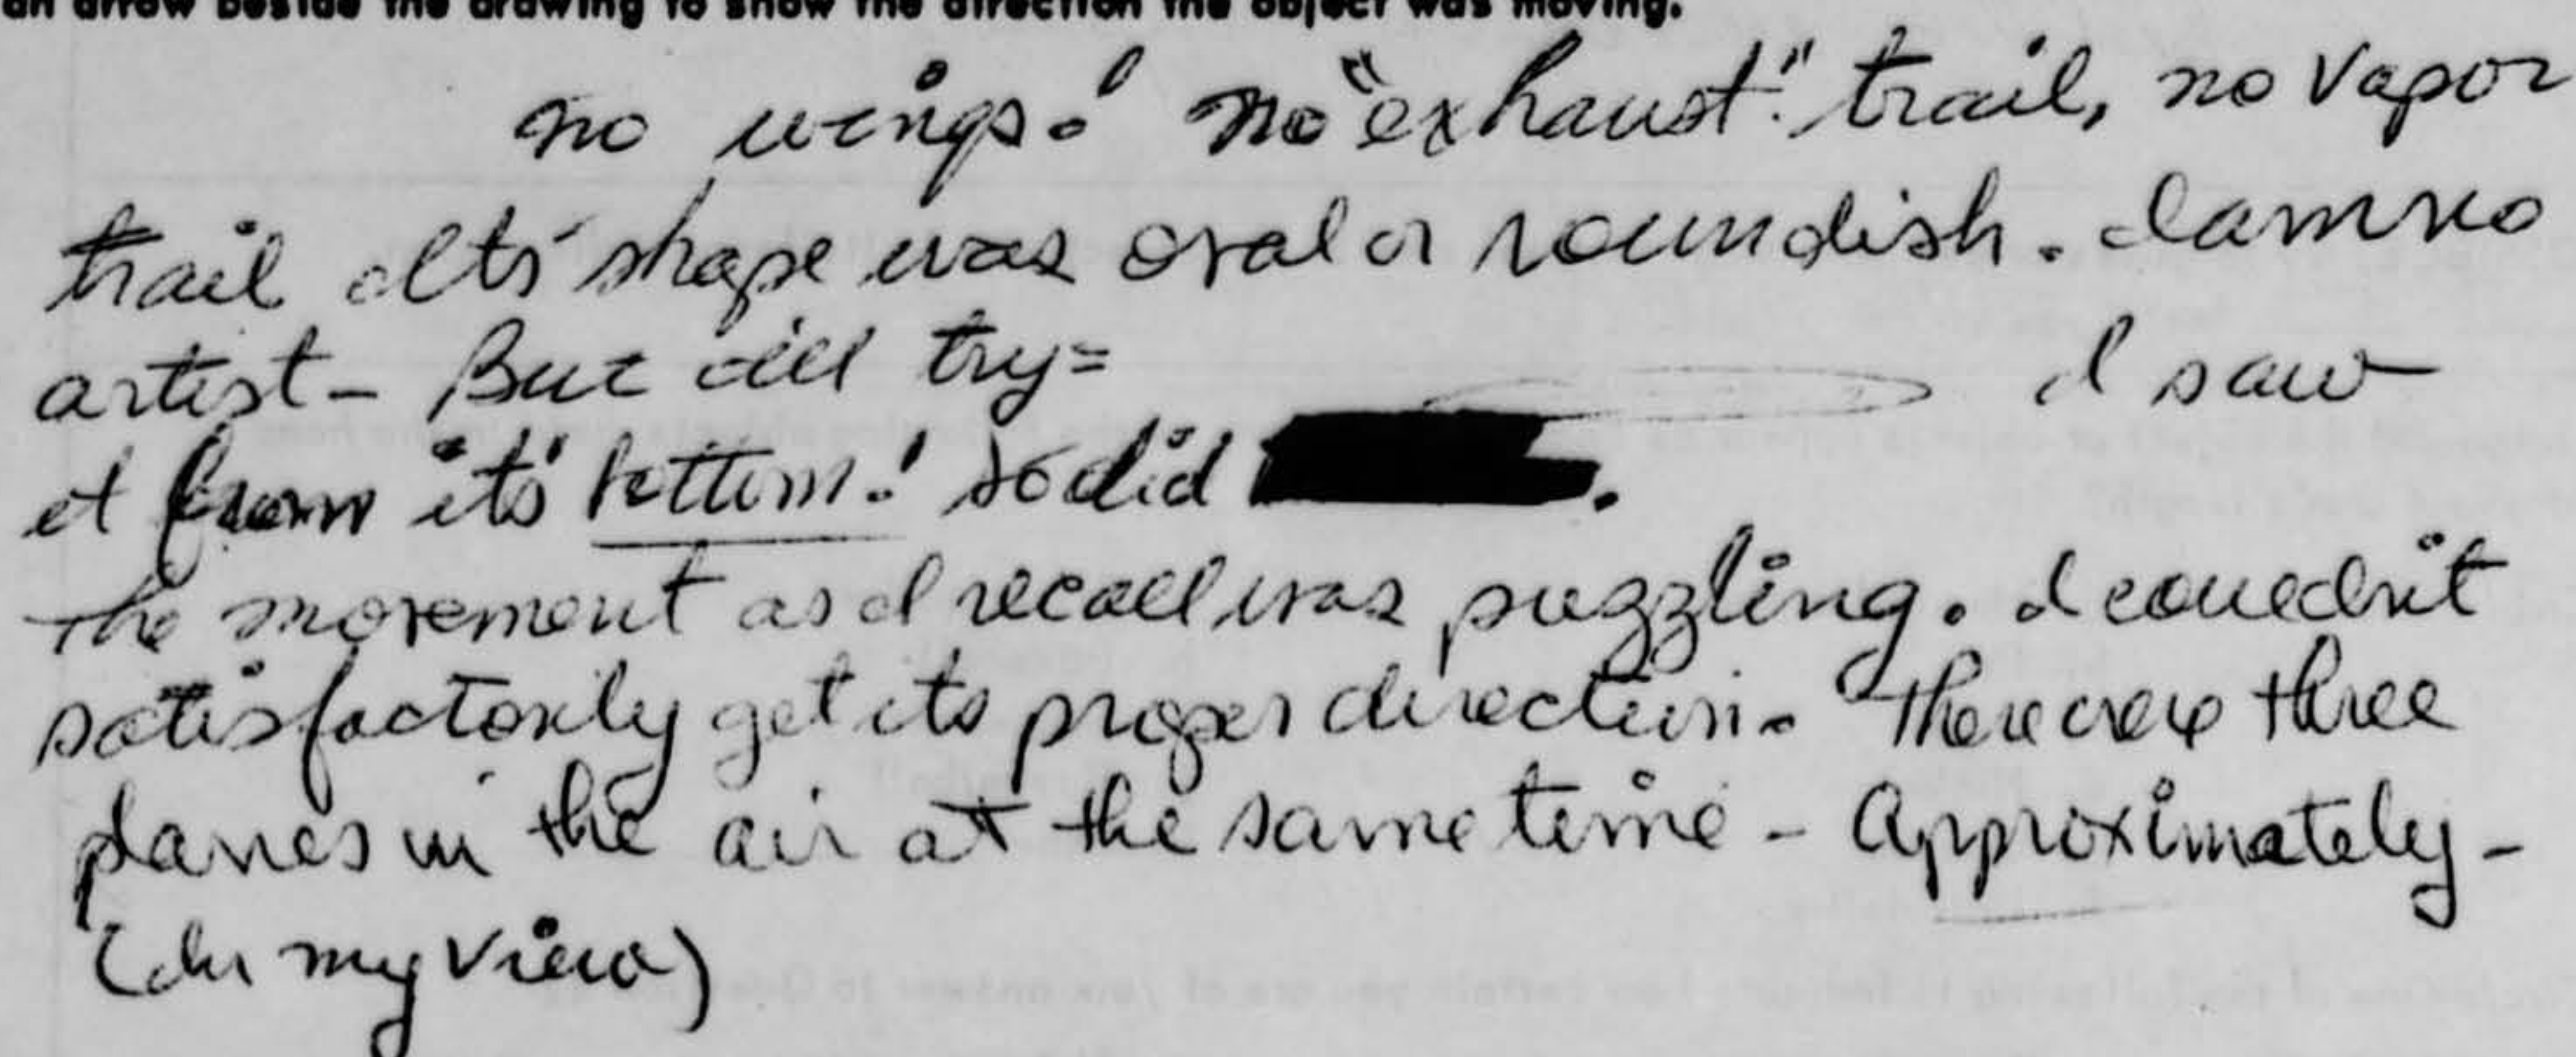 an arrow beside the drawing to show the direction the object was moving.
no wings! no "exhaust" trail, no vapor
trail Its' shape was oval or roundish. I am no
artist - But ill try= I saw
it from its' bottom! so did .
The movement as I recall was puzzling. I couldn't
satisfactorily get its proper direction. There were three
planes in the air at the same time - Approximately -
(In my view)